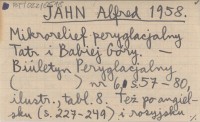 JAHN Alfred 1958.
Mikrorelief peryglacjalny
Tatr i Babiej Góry. —
Biuletyn Peryglacjalny
( ) nr 6, s. 57–80,
ilustr. tabl. 8. Też po angiel-
sku (s. 227-249) i rosyjsku